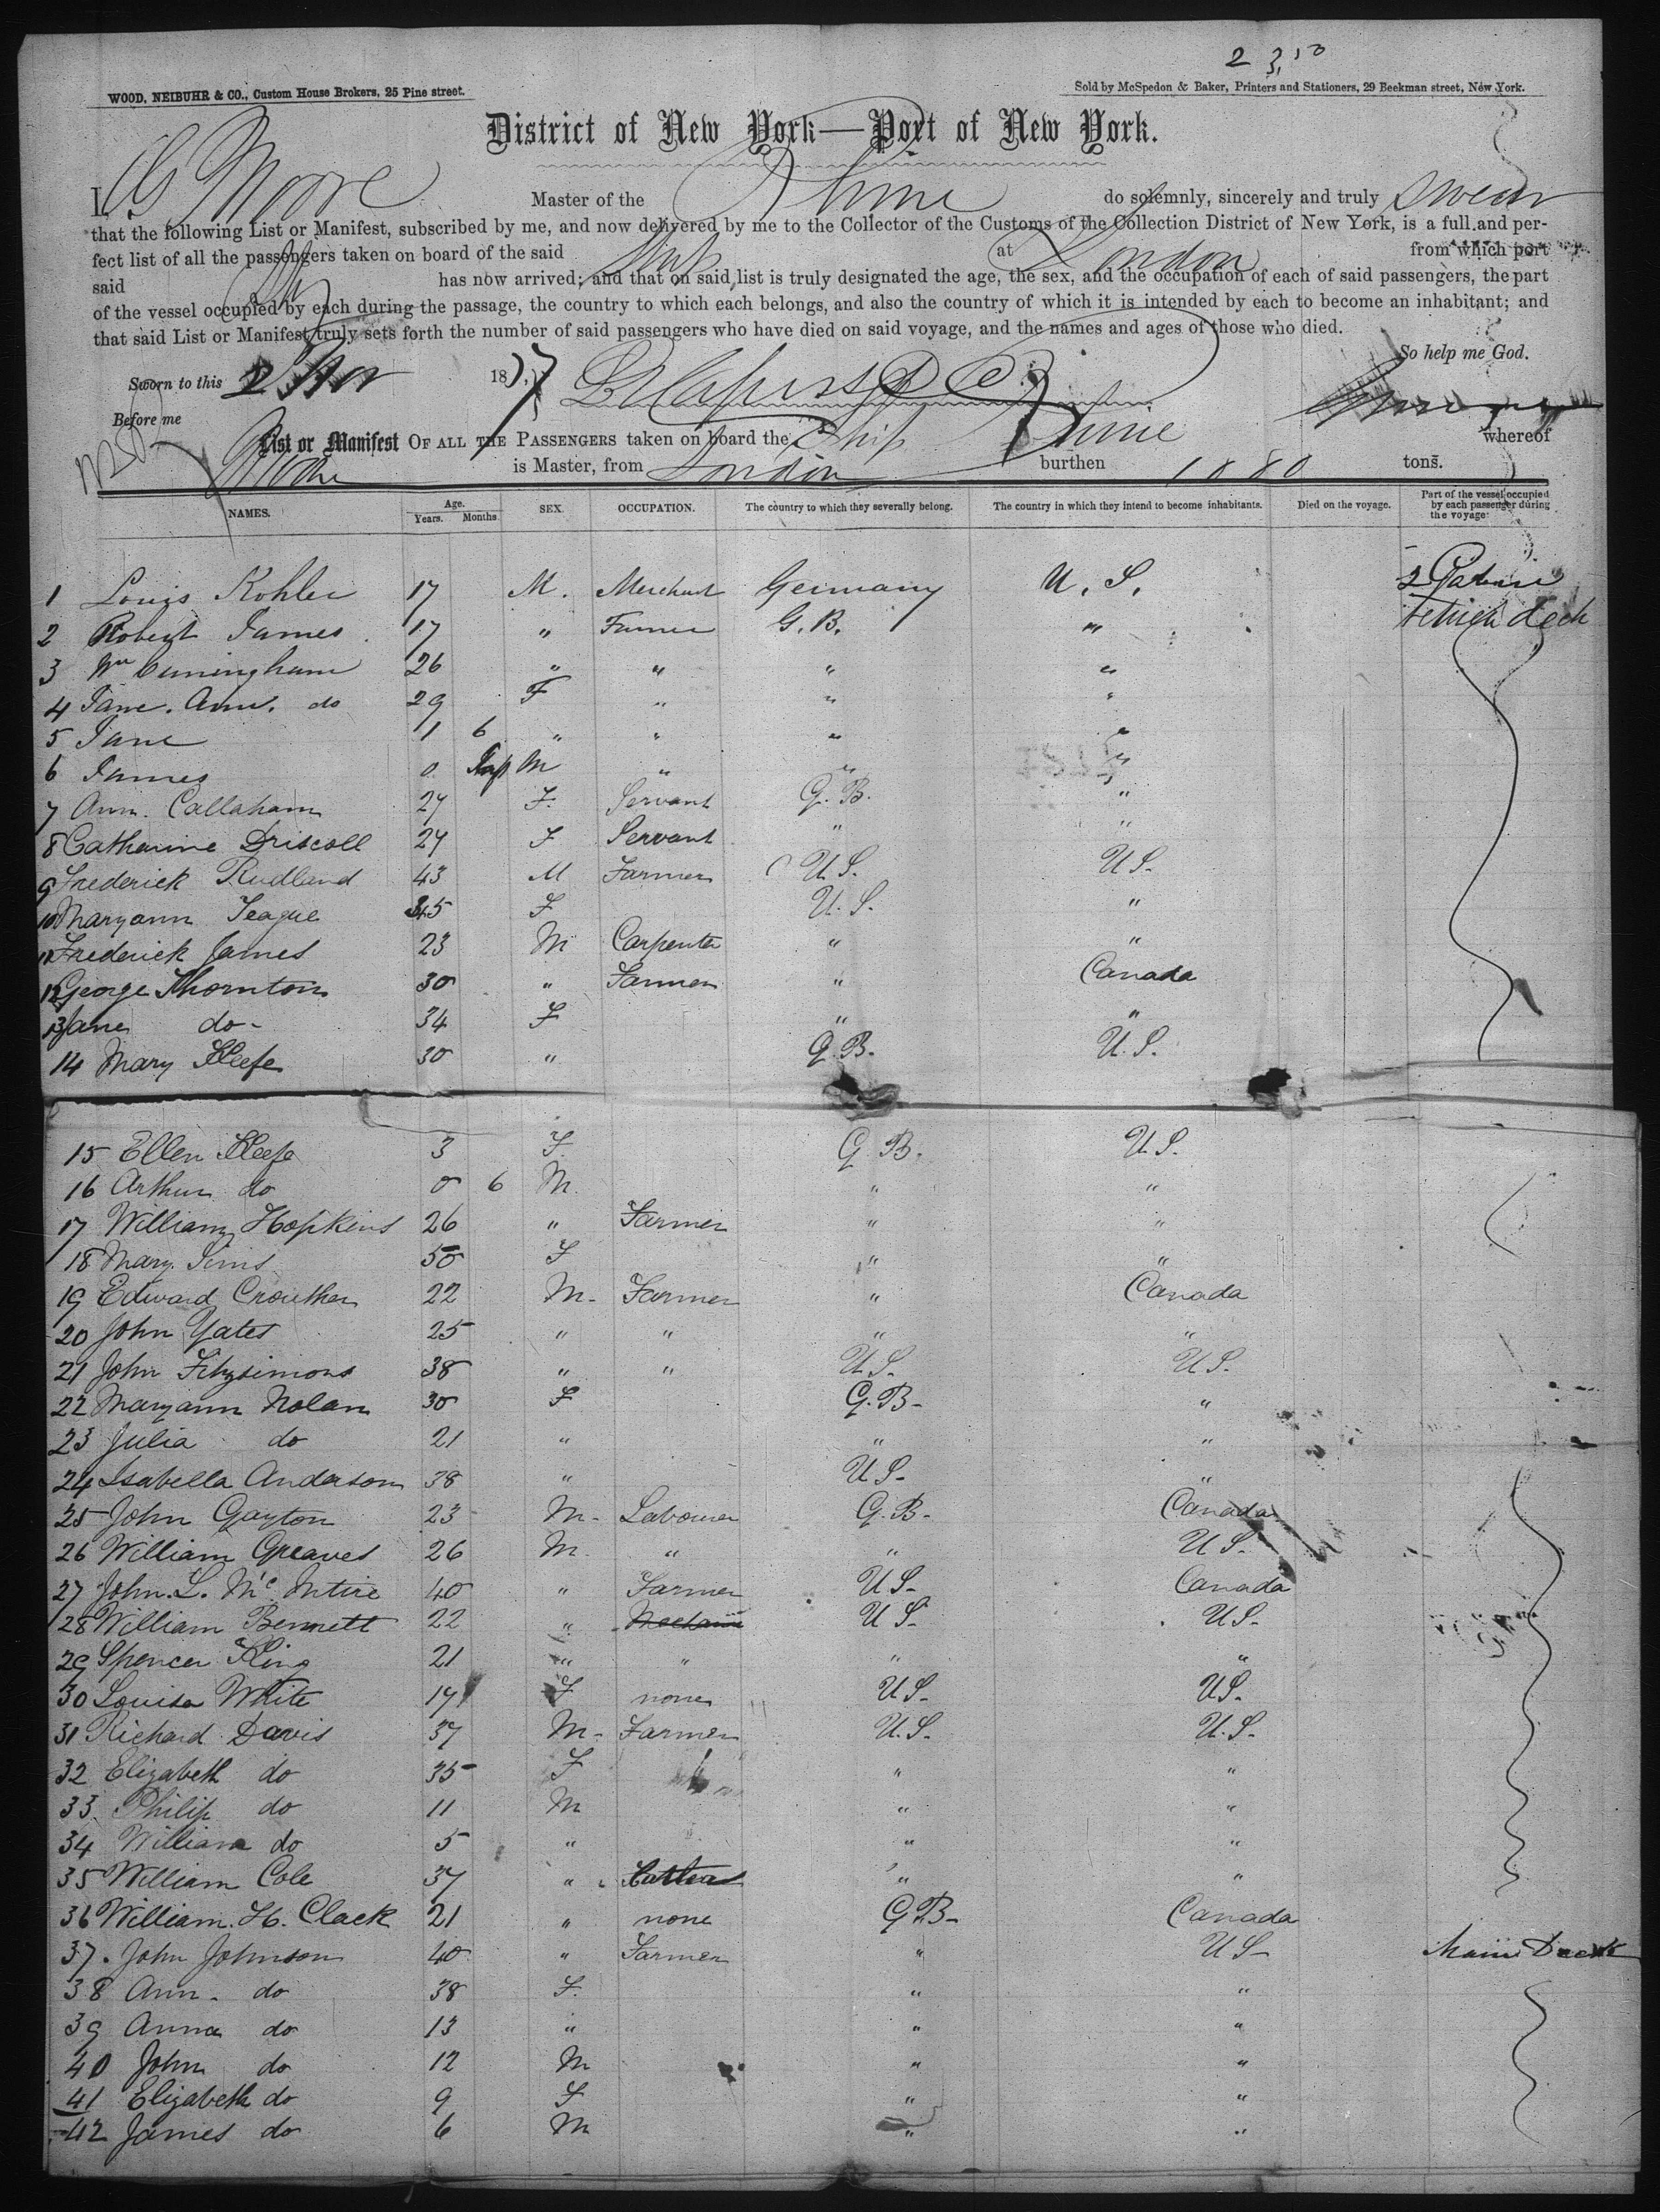 2 3,50
WOOD, NEIBUHR & CO., Custom House Brokers, 25 Pine street.
Sold by McSpedon & Baker, Printers and Stationers, 29 Beekman street, New York.
District of New York—Port of New York.
I, Moore Master of the Rhine do solemnly, sincerely and truly swear
that the following List or Manifest, subscribed by me, and now delivered by me to the Collector of the Customs of the Collection District of New York, is a full and per-
fect list of all the passengers taken on board of the said Ship at London from which port
said Ship has now arrived; and that on said list is truly designated the age, the sex, and the occupation of each of said passengers, the part
of the vessel occupied by each during the passage, the country to which each belongs, and also the country of which it is intended by each to become an inhabitant; and
that said List or Manifest truly sets forth the number of said passengers who have died on said voyage, and the names and ages of those who died.
So help me God.
Sworn to this 2 Nov 1877
Before me
List or Manifest OF ALL THE PASSENGERS taken on board the Ship Rhine whereof
Moore is Master, from London burthen 1080 tons.
NAMES. Age. Years. Months. SEX. OCCUPATION. The country to which they severally belong. The country in which they intend to become inhabitants. Died on the voyage. Part of the vessel occupied by each passenger during the voyage.
1 Louis Kohler 17 M. Merchant Germany U. S. 2 Cabin
2 Robert James 17 " Farmer G. B. " Between deck
3 Wm Cuningham 26 " " " "
4 Jane. Ann. do 29 F " " "
5 Jane 1 6 " " " "
6 James 0 Inf M " " "
7 Ann. Callaham 27 F. Servant G. B. "
8 Catharine Driscoll 27 F Servant " "
9 Frederick Rudland 43 M Farmer U. S. U S.
10 Maryann Teague 45 F U. S. "
11 Frederick James 23 M Carpenter " "
12 George Thornton 30 " Farmer " Canada
13 Jane do- 34 F " "
14 Mary Keefe 30 " G. B. U. S.
15 Ellen Keefe 3 F. G. B. U. S.
16 Arthur do 0 6 M. " "
17 William Hopkins 26 " Farmer " "
18 Mary Sims 50 F " "
19 Edward Crouther 22 M- Farmer " Canada
20 John Yates 25 " " " "
21 John Fitzsimons 38 " " U S. U S.
22 Maryann Nolan 30 F G. B- "
23 Julia do 21 " " "
24 Isabella Anderson 38 " U S- "
25 John Gayton 23 M- Labourer G. B- Canada
26 William Greaves 26 M. " " U S-
27 John. L. Mc Intire 40 " Farmer U S- Canada
28 William Bennett 22 " Mechanic U S- U S-
29 Spencer King 21 " " " "
30 Louisa White 17 F none U S- U S-
31 Richard Davis 37 M- Farmer U. S- U. S-
32 Elizabeth do 35 F " "
33 Philip do 11 M " "
34 William do 5 " " "
35 William Cole 37 " " "
36 William. H. Clack 21 " none G B- Canada
37. John Johnson 40 " Farmer " U S- Main Deck
38 Ann- do 38 F. " "
39 Anna do 13 " " "
40 John do 12 M " "
41 Elizabeth do 9 F " "
42 James do 6 M " "